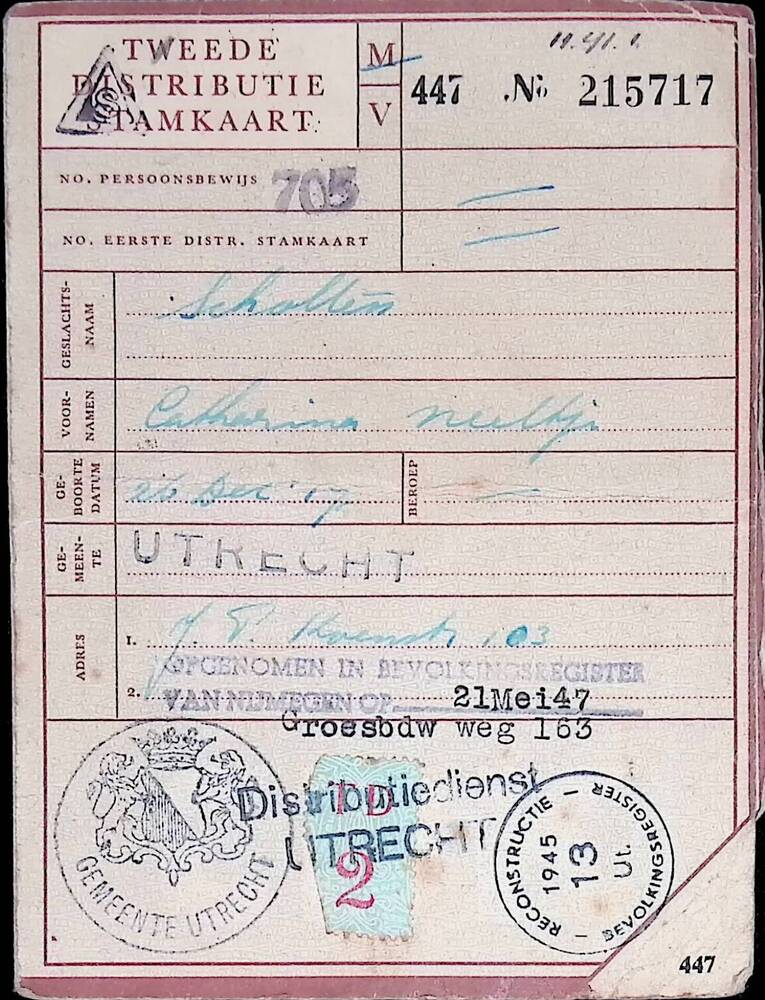 TWEEDE
DISTRIBUTIE
STAMKAART
M
V
447 No 215717
NO. PERSOONSBEWIJS 705
NO. EERSTE DISTR. STAMKAART
GESLACHTS-
NAAM
Scholten
VOOR-
NAMEN
Catharina Neeltje
GE-
BOORTE
DATUM
26 Dec '17
BEROEP
GE-
MEEN-
TE
UTRECHT
ADRES
1. 103
OPGENOMEN IN BEVOLKINGSREGISTER
2. VAN NIJMEGEN OP 21Mei47
Groesbdw weg 163
GEMEENTE UTRECHT
Distributiedienst
UTRECHT
TD
2
RECONSTRUCTIE – BEVOLKINGSREGISTER –
1945
13
Ut.
447